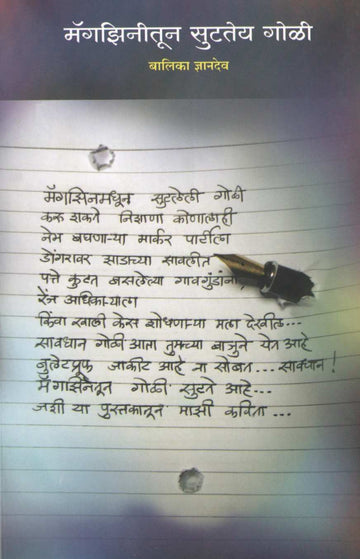 मॅगझिनीतून सुटतेय गोळी
बालिका ज्ञानदेव
मॅगझिनमधून सुटलेली गोळी
करू शकते निशाणा कोणालाही
नेम बघणाऱ्या मार्कर पार्टीला
डोंगरावर झाडाच्या सावलीत
पत्ते कुटत बसलेल्या गावगुंडांना
रेंज अधिकाऱ्याला
किंवा खाली केस शोधणाऱ्या मला देखील...
सावधान गोळी आता तुमच्या बाजुने येत आहे
बुलेटप्रूफ जाकीट आहे ना सोबत... सावधान!
मॅगझिनितून गोळी सुटते आहे...
जशी या पुस्तकातून माझी कविता...